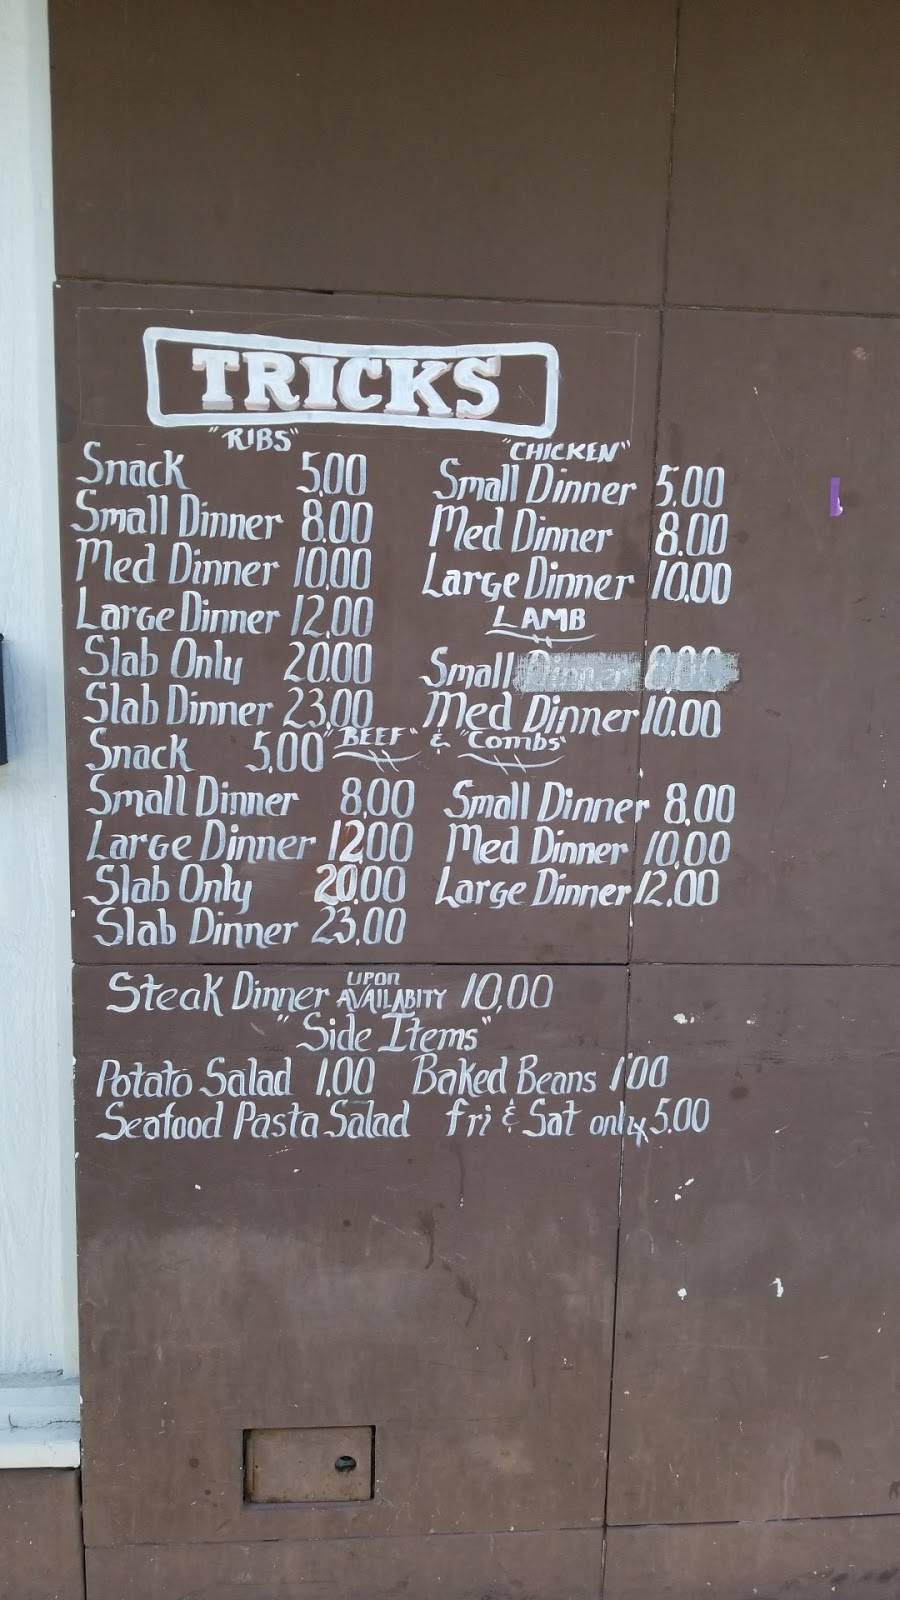 TRICKS
"RIBS"
Snack 5.00
Small Dinner 8.00
Med Dinner 10.00
Large Dinner 12.00
Slab Only 20.00
Slab Dinner 23.00
"CHICKEN"
Small Dinner 5.00
Med Dinner 8.00
Large Dinner 10.00
LAMB
Small Dinner 8.00
Med Dinner 10.00
"BEEF" & "Combs"
Snack 5.00
Small Dinner 8.00
Large Dinner 12.00
Slab Only 20.00
Slab Dinner 23.00
Small Dinner 8.00
Med Dinner 10.00
Large Dinner 12.00
Steak Dinner UPON AVAILABITY 10.00
"Side Items"
Potato Salad 1.00 Baked Beans 1.00
Seafood Pasta Salad Fri & Sat only 5.00